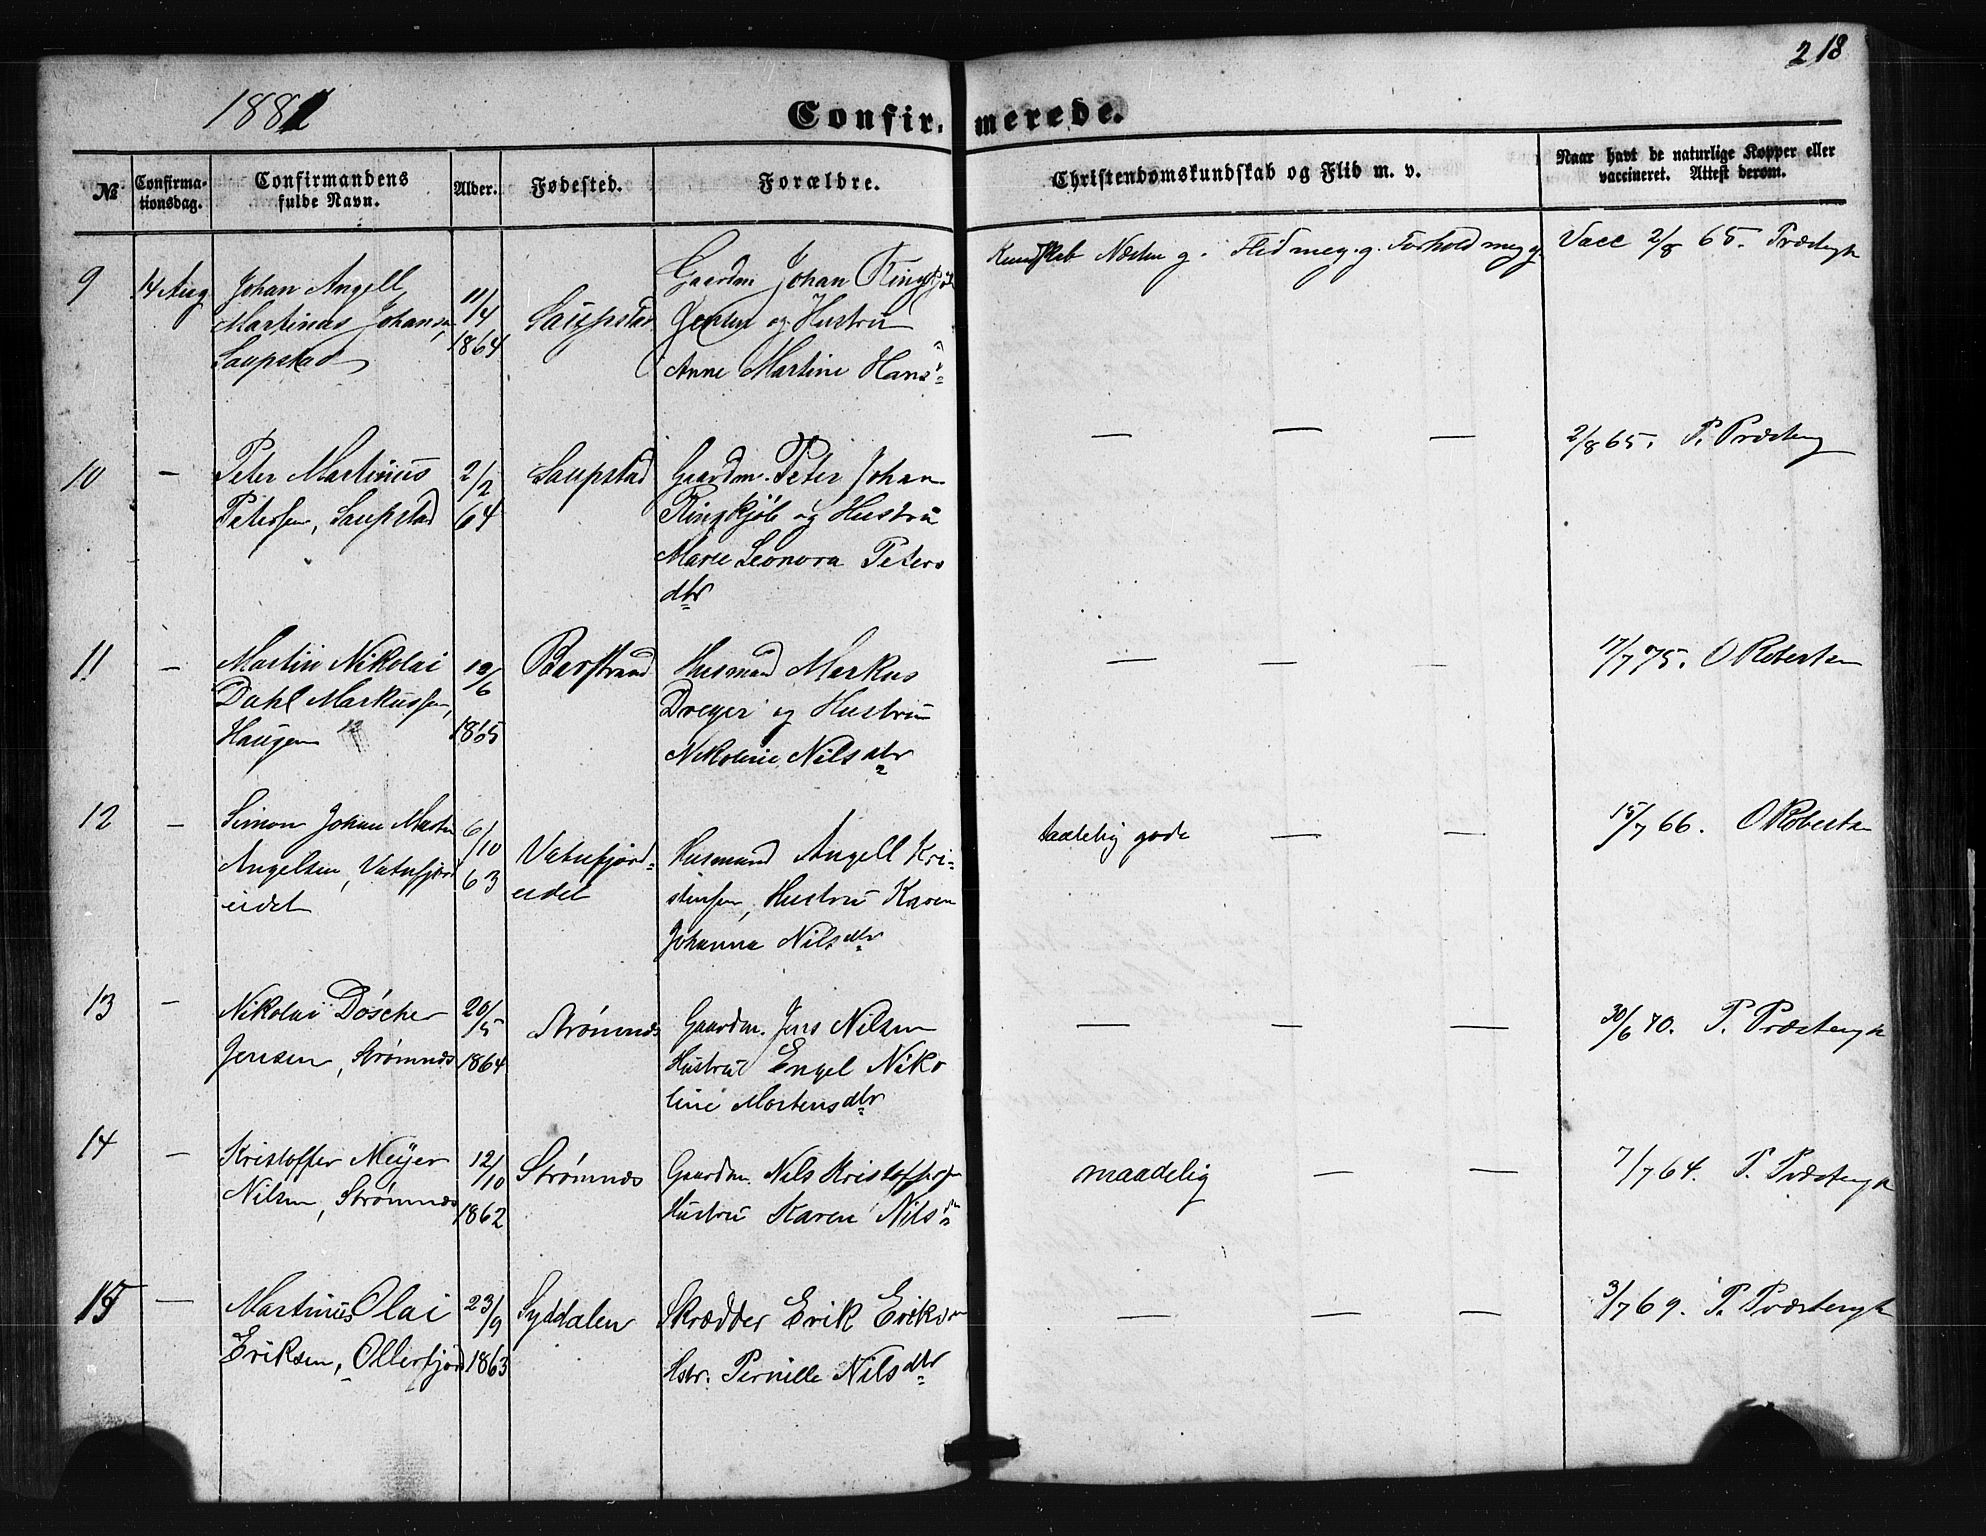 218
1881
Confirmerede.
№
Confirmationsdag.
Confirmandens fulde Navn.
Alder.
Fødested.
Forældre.
Christendomskundskab og Flid m. v.
Naar havt de naturlige Kopper eller vaccineret. Attest derom.
9
14 Aug
Johan Angell
Martinus Johansen,
Saupstad
11/4
1864
Saupstad
Gaardm Johan Ringkjøb
Jentoft og Hustru
Anne Martine Hansd
Kundskab Næsten g. Flid meg. g. Forhold meg g
Vacc 2/8 65. Præsteng
10
—
Peter Martinus
Petersen, Saupstad
2/2
64
Saupstad
Gaardm. Peter Johan
Ringkjøb og Hustru
Marie Leonora Peters
dtr
— — —
2/8 65. P. Præsteng
11
—
Martin Nikolai
Dahl Markussen,
Haugen
12/6
1865
Barstrand
Husmand Markus
Dreyer og Hustru
Nikoline Nilsdtr
— — —
17/7 75. O Robertsen
12
—
Simon Johan Martin
Angelsen, Vatnfjord
eidet
6/10
63
Vatnfjord-
eidet
Husmand Angell Kri-
stensen, Hustru Karen
Johanna Nilsdtr
taalelig gode — —
15/7 66. O Robertsen
13
—
Nikolai Döscher
Jensen, Strømnæs
20/5
1864
Strømnæs
Gaardm. Jens Nilsen
Hustru Engel Niko
line Mortensdtr
— — —
30/6 70. P. Præstengk
14
—
Kristoffer Meÿer
Nilsen, Strømnæs
12/10
1862
Strømnæs
Gaardm. Nils Kristoffersen
Hustru Karen Nilsd
maadelig — —
7/7 64. P. Præstengk
15
—
Martinus Olai
Eriksen, Ollerfjord
23/9
1863
Syddalen
Skrædder Erik Eriksen
Hstr. Pernille Nilsdtr
— — —
3/7 69. P. Præstengk